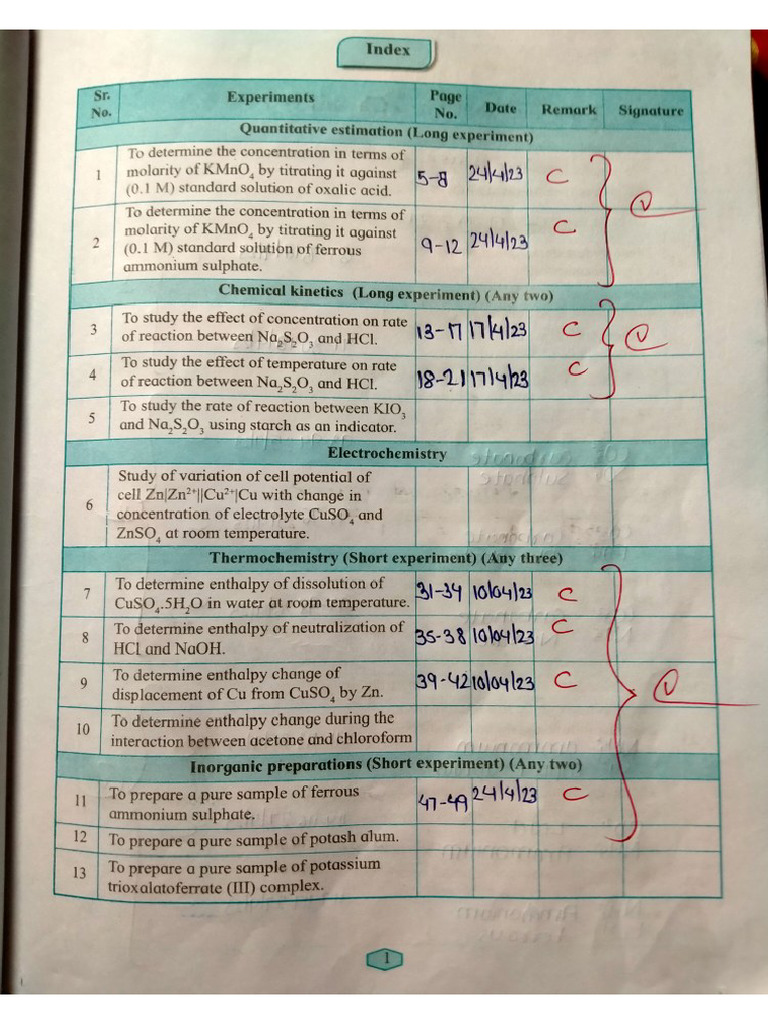 Index
Sr. No. Experiments Page No. Date Remark Signature
Quantitative estimation (Long experiment)
1 To determine the concentration in terms of
molarity of KMnO₄ by titrating it against
(0.1 M) standard solution of oxalic acid.
5-8 24/4/23 C
2 To determine the concentration in terms of
molarity of KMnO₄ by titrating it against
(0.1 M) standard solution of ferrous
ammonium sulphate.
9-12 24/4/23 C
Chemical kinetics (Long experiment) (Any two)
3 To study the effect of concentration on rate
of reaction between Na₂S₂O₃ and HCl.
13-17 17/4/23 C
4 To study the effect of temperature on rate
of reaction between Na₂S₂O₃ and HCl.
18-21 17/4/23 C
5 To study the rate of reaction between KIO₃
and Na₂S₂O₃ using starch as an indicator.
Electrochemistry
6 Study of variation of cell potential of
cell Zn|Zn²⁺||Cu²⁺|Cu with change in
concentration of electrolyte CuSO₄ and
ZnSO₄ at room temperature.
Thermochemistry (Short experiment) (Any three)
7 To determine enthalpy of dissolution of
CuSO₄.5H₂O in water at room temperature.
31-34 10/04/23 C
8 To determine enthalpy of neutralization of
HCl and NaOH.
35-38 10/04/23 C
9 To determine enthalpy change of
displacement of Cu from CuSO₄ by Zn.
39-42 10/04/23 C
10 To determine enthalpy change during the
interaction between acetone and chloroform
Inorganic preparations (Short experiment) (Any two)
11 To prepare a pure sample of ferrous
ammonium sulphate.
47-49 24/4/23 C
12 To prepare a pure sample of potash alum.
13 To prepare a pure sample of potassium
trioxalatoferrate (III) complex.
1